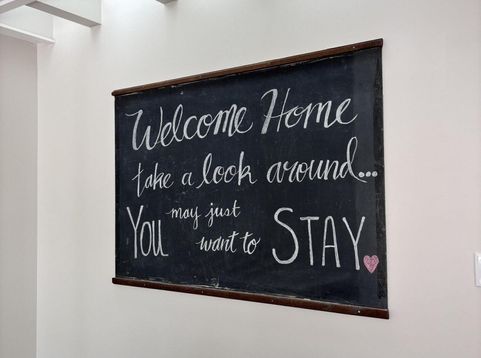 Welcome Home
take a look around...
You may just
want to STAY